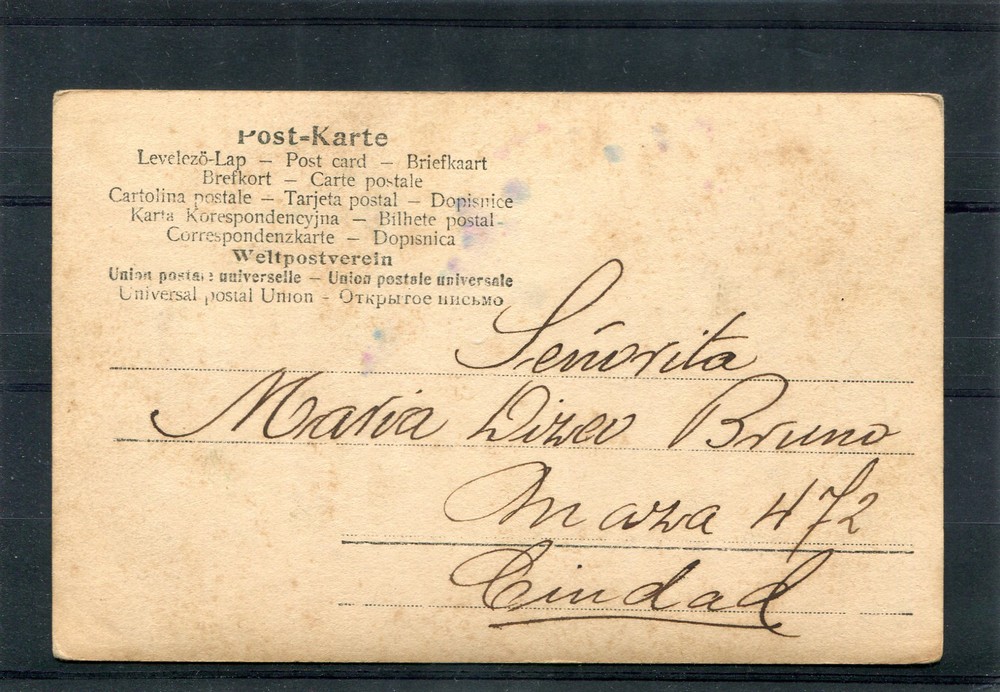 Post-Karte
Levelező-Lap – Post card – Briefkaart
Brefkort – Carte postale
Cartolina postale – Tarjeta postal – Dopisnice
Karta Korespondencyjna – Bilhete postal
Correspondenzkarte – Dopisnica
Weltpostverein
Union postale universelle – Union postale universale
Universal postal Union - Открытое письмо
Señorita
Maria Bruno
472
Ciudad